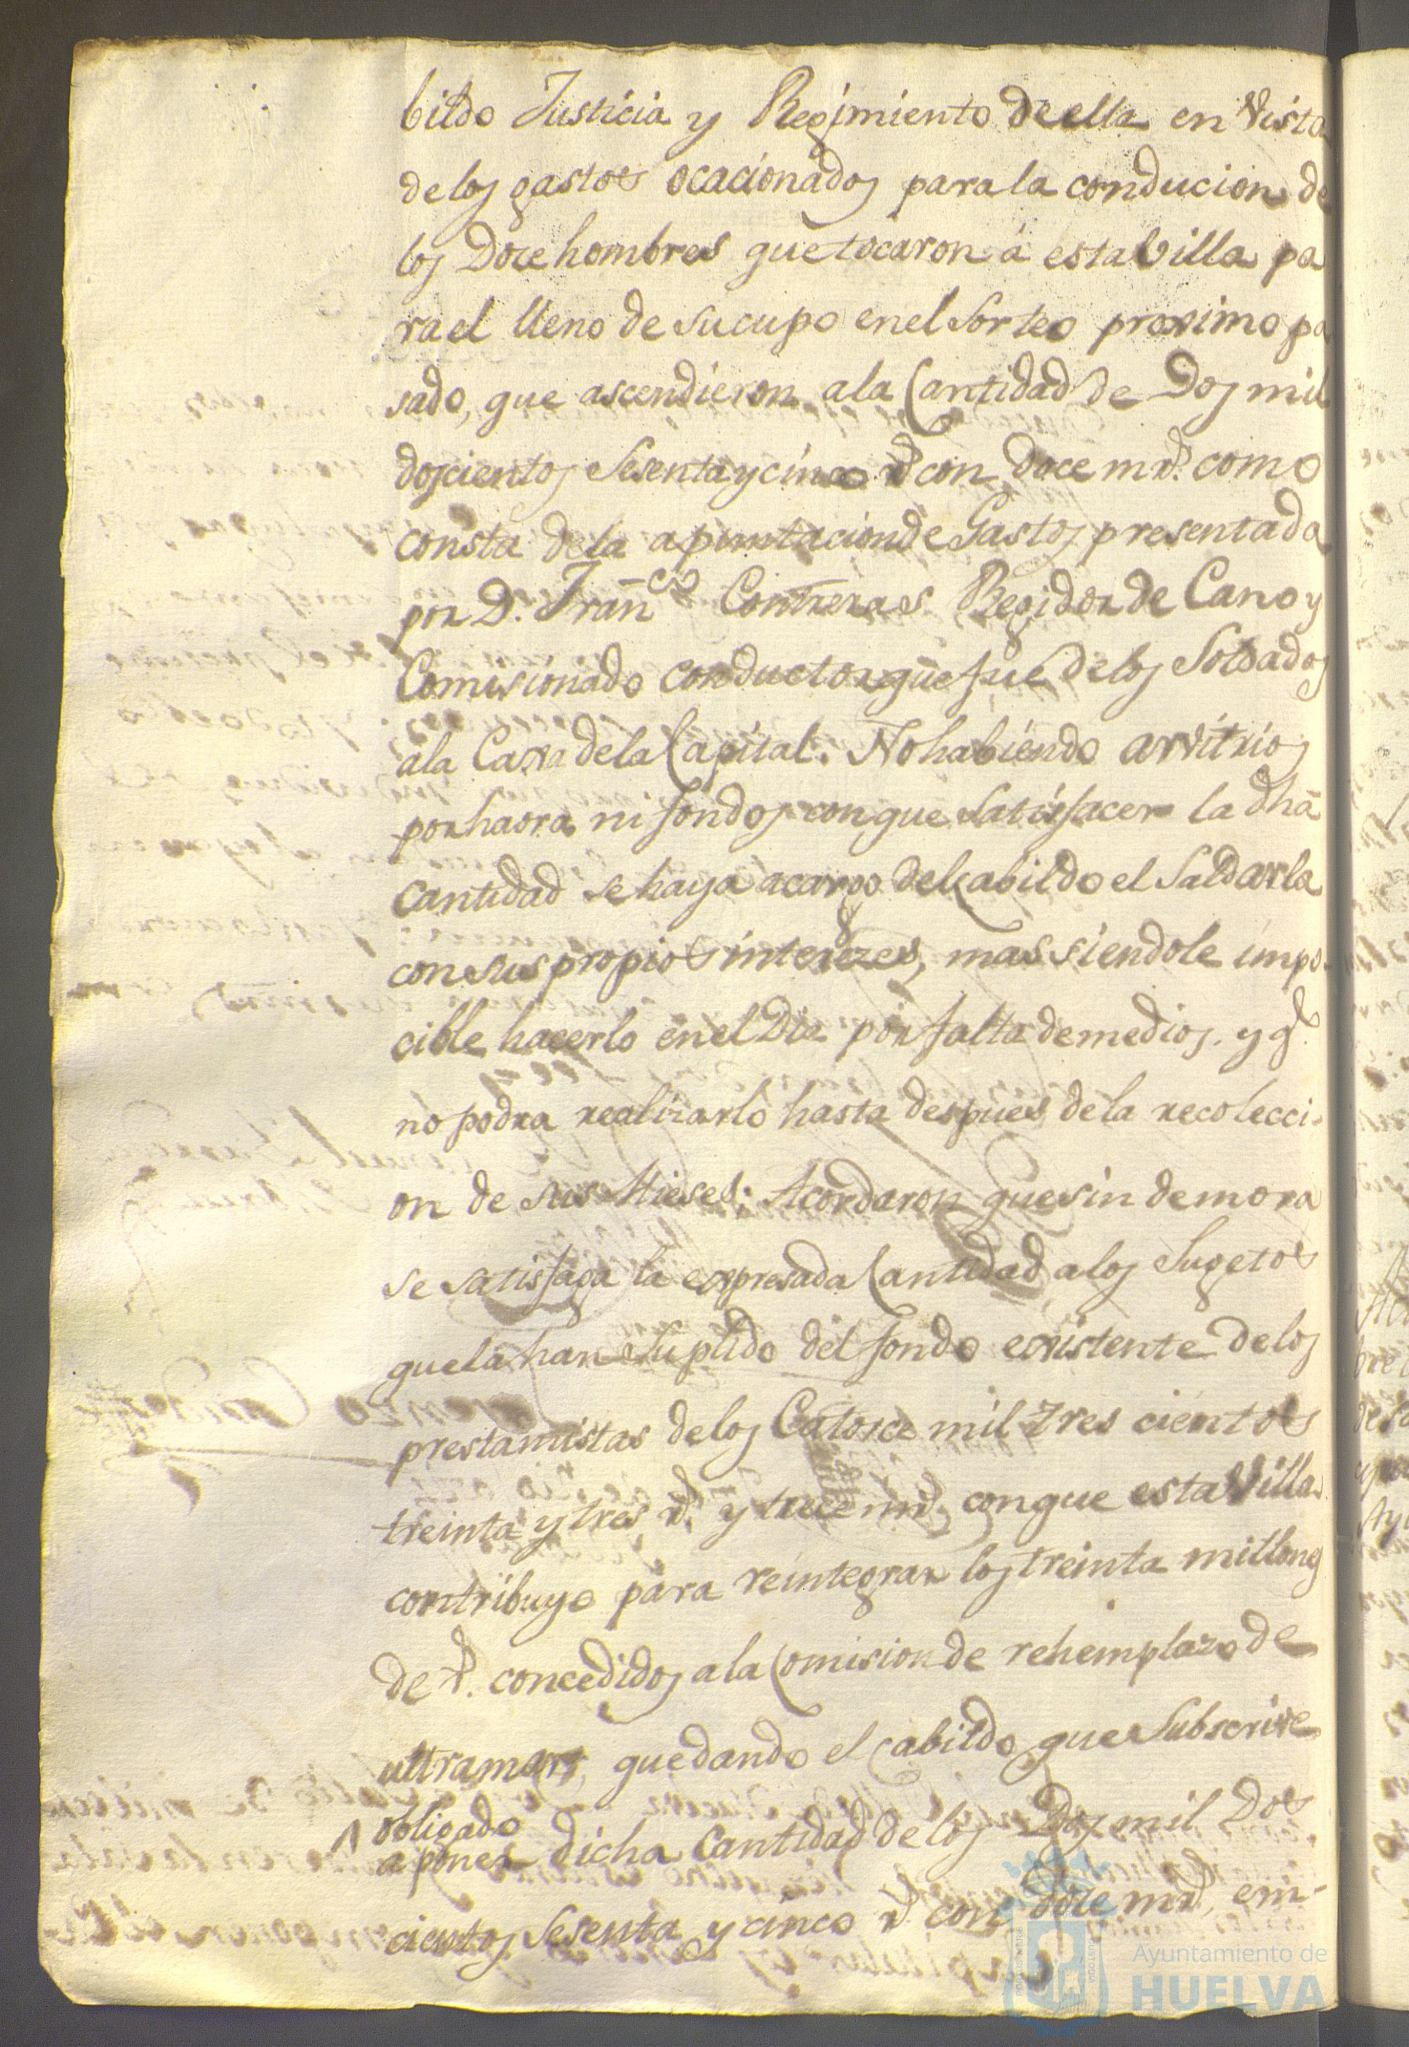 bildo Justicia y Regimiento de ella en Vista
de los gastos ocacionados para la conducion de
los Doce hombres que tocaron á esta Villa pa
ra el lleno de su cupo en el Sorteo proximo pa
sado, que ascendieron a la Cantidad de Dos mil
doscientos Sesenta y cinco rs. con doce mrs. como
consta de la apuntacion de Gastos presentada
por D. Franco Contreras Regidor de Cano y
Comisionado conductor que fue de los Soldados
a la Caxa de la Capital. No habiendo arvitrios
por haora ni fondos con que Satisfacer la dha
cantidad se haya a cargo del Cabildo el Saldarla
con sus propios interezes, mas siendole impo-
cible hacerlo en el Dia por falta de medios. y q.
no podra realizarlo hasta despues de la recolecci-
on de sus Mieses; Acordaron que sin demora
se satisfaga la expresada Cantidad a los Sugetos
que la han Suplido del fondo existente de los
prestamistas de los Catorce mil tres cientos
treinta y tres rs. y trece mrs. con que esta Villa
contribuyo para reintegrar los treinta millons
de rs. concedidos a la Comision de rehemplazo de
ultramar, quedando el Cabildo que Subscrive
obligado
a poner dicha Cantidad de los Dos mil Dos
cientos Sesenta y cinco rs. con doce mrs. em-
Ayuntamiento de
HUELVA